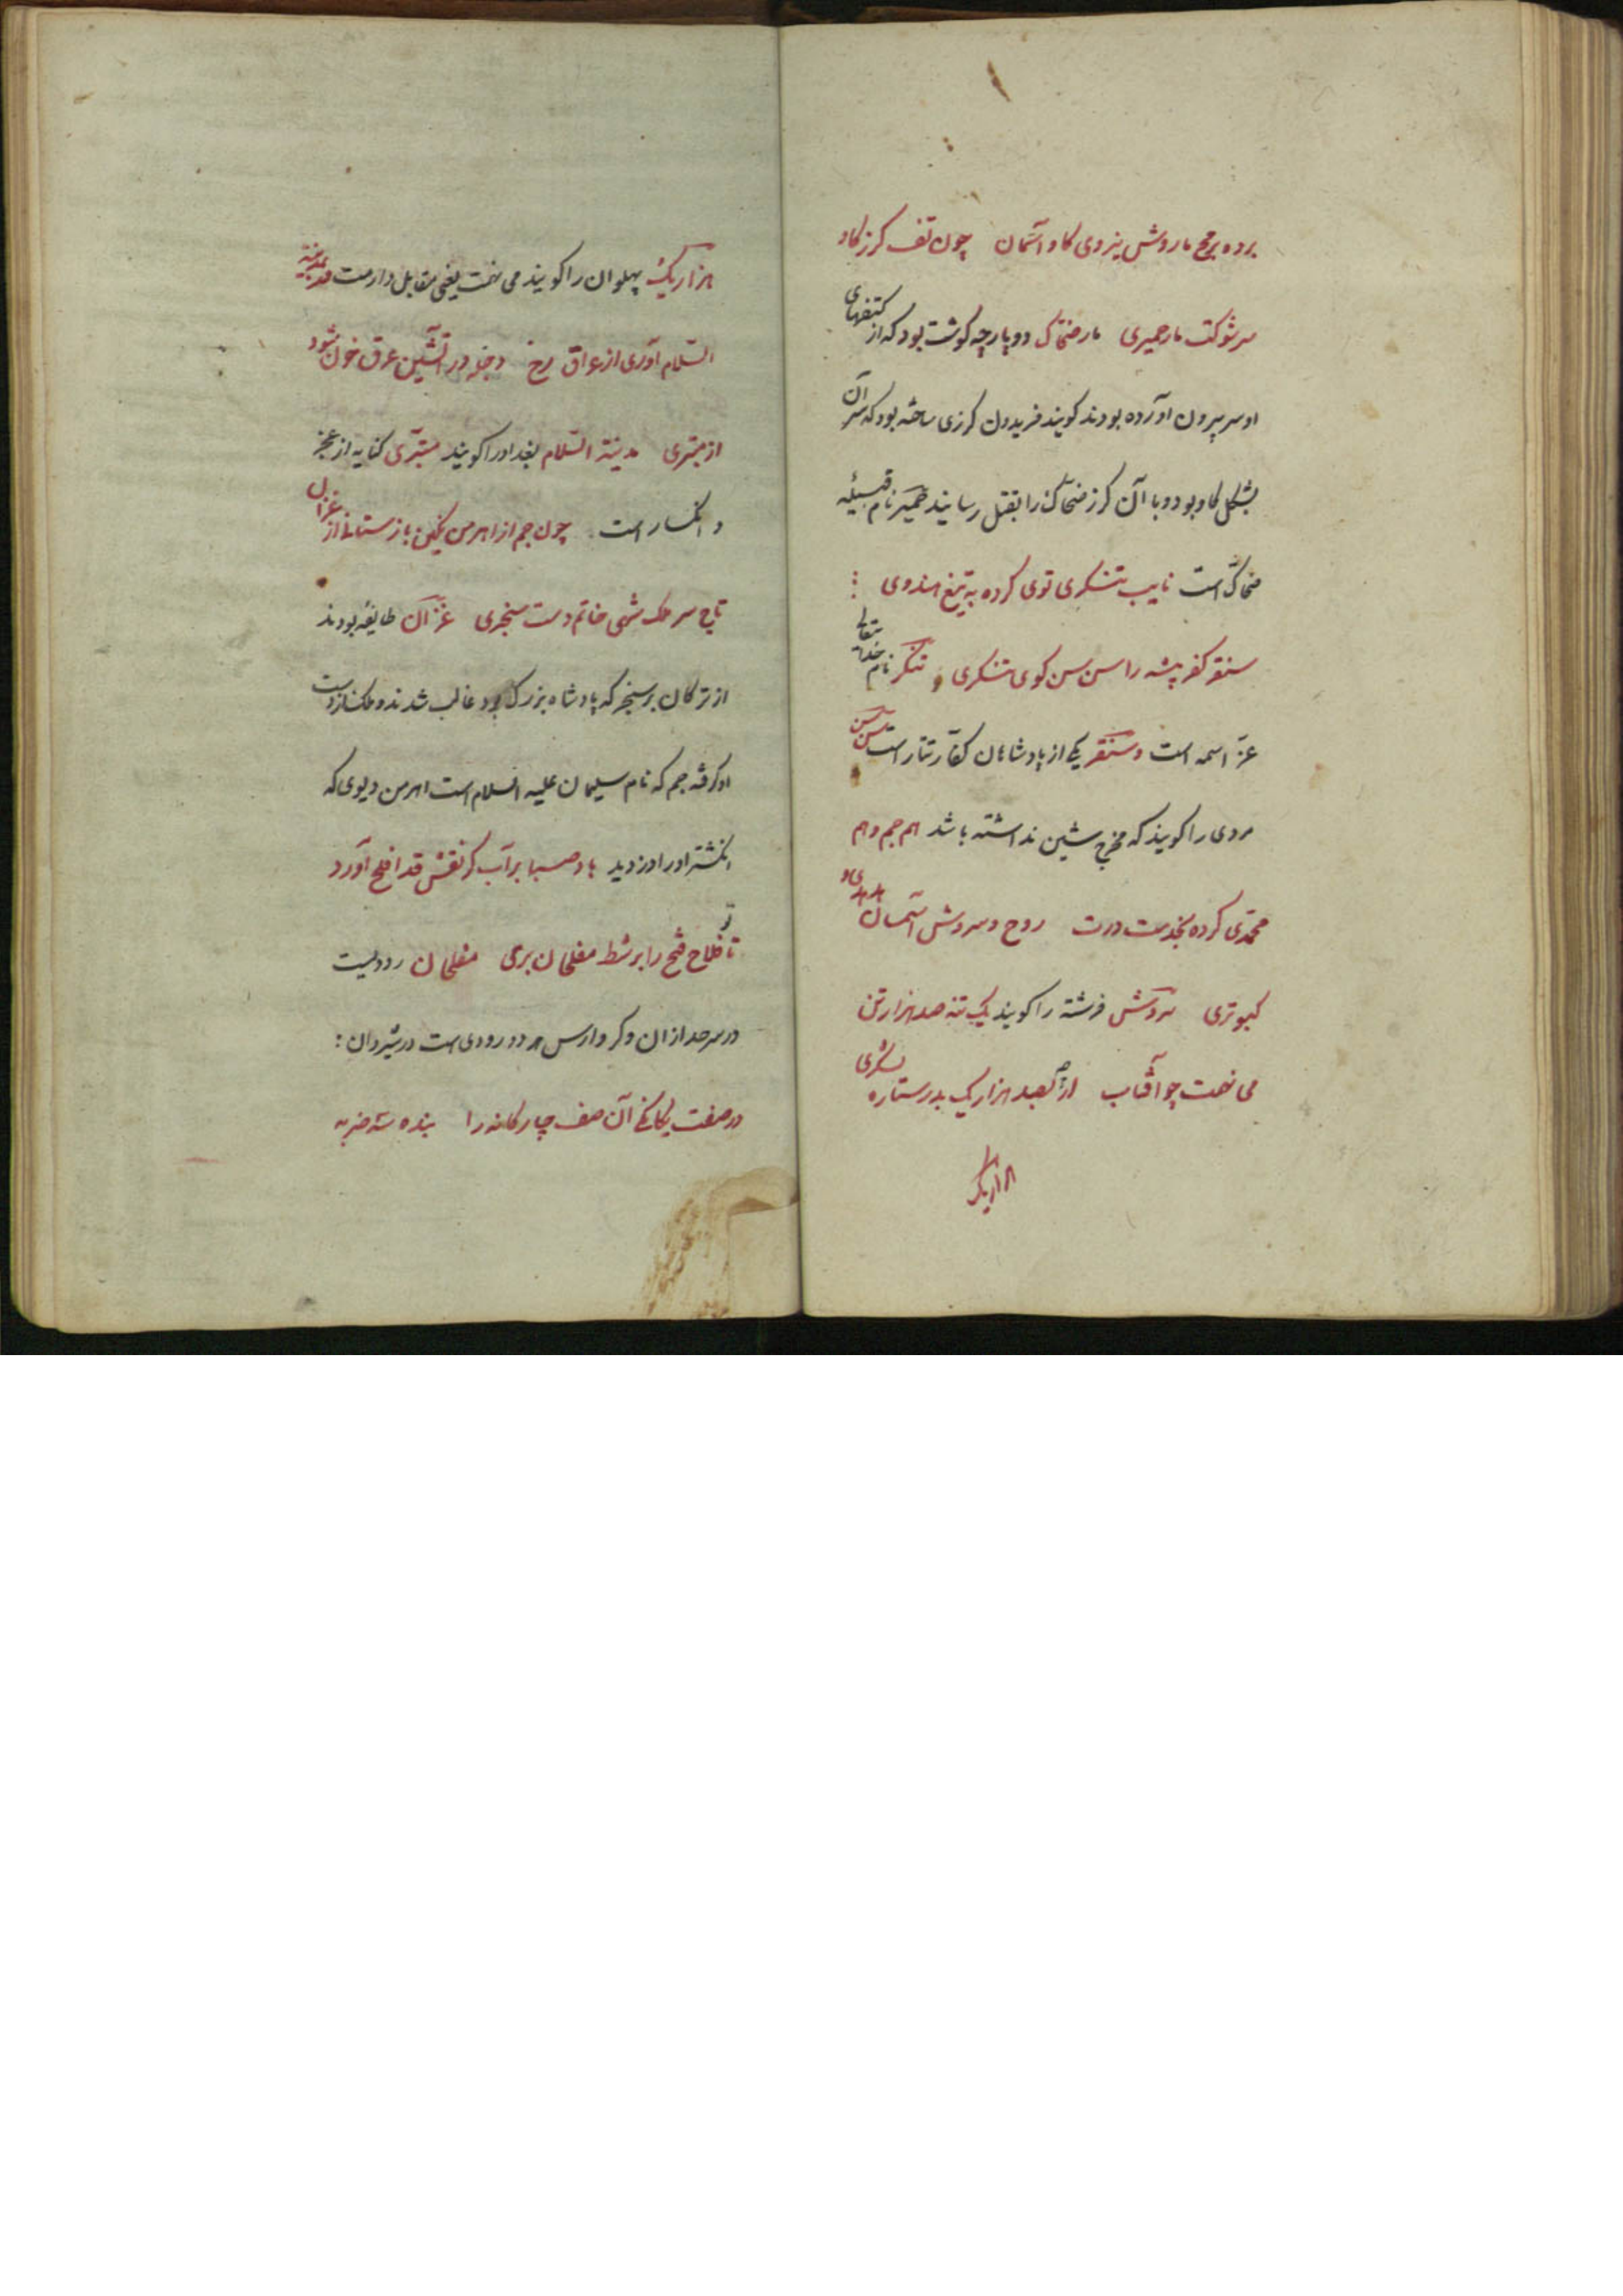 برده برمح ماروش نیروی کاو آسمان چون تف کرز کاو
سر شوکت مار حمیری مار ضحاک دو پارچه کوشت بود که از کتفهای
او سر بیرون آورده بودند کویند فریدون کرزی ساخته بود که سر آن
بشکل کاو بود و با آن کرز ضحاک را بقتل رسانید حمیر نام قبیله
ضحاک است نایب تنکری توی کرده به تیغ هندوی
سنقر کفر پیشه را سن سن کوی تنکری و تنکر نام خدا تعالی
عز اسمه است و سنقر یکی از پادشاهان کفار تتار است سن سن
مردی را کویند که مخرج شین نداشته باشد هم جم و هم
محمدی کرده بخدمت درت روح و سروش آسمان هدهدی و
کبوتری سروش فرشته را کویند یک تنه صد هزار تن
می نهمت چو آفتاب ارچه بصد هزار یک بدر ستاره لشکری
هزار یک
هزار یک پهلوان را کویند می نهمت یعنی مقابل دارمت قدر بمدینة
السلام آوری از عراق رخ دجله در آتشین عرق خون شود
از مبتری مدینة السلام بغداد را کویند مبتری کنایه از عجز
و انکسار است چون جم از اهرمن نکین باز ستانی از غزان
تاج سر ملک شهی خاتم دست سنجری غزان طایفه بودند
از ترکان بر سنجر که پادشاه بزرک بود غالب شدند و ملک از دست
او کرفته جم که نام سلیمان علیه السلام است اهرمن دیوی که
انکشتر او را دزدید باد صبا بر آب کر نقش قد افلح آورد
تا تو فلاح فتح را بر شط مفلحان بری مفلحان رودیست
در سرحد اران و کر و ارس هر دو رودی است در شیروان :
در صفت یکانکی آن صف چارکانه را بنده سه ضربه